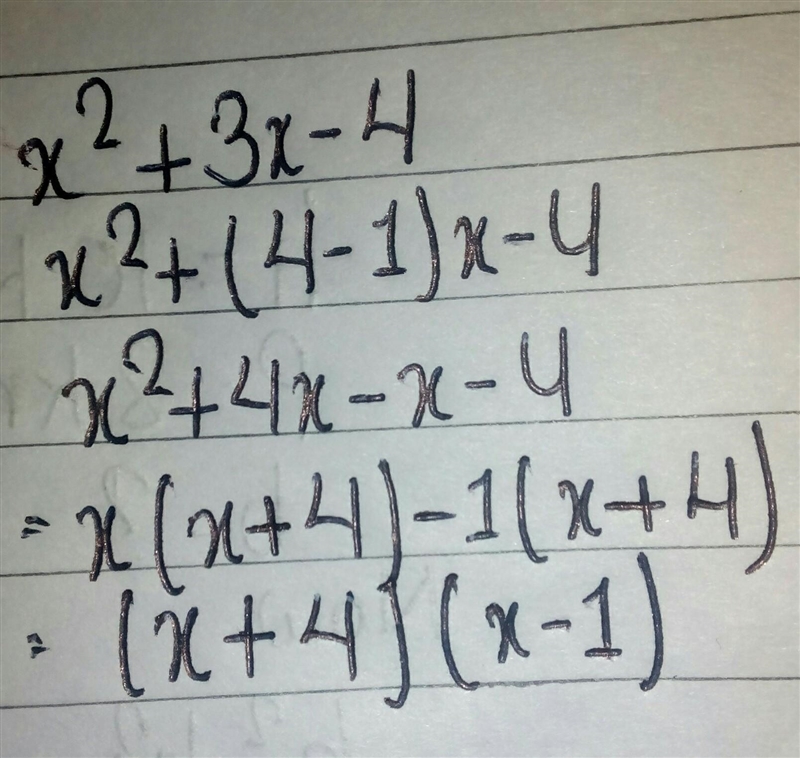 x² + 3x - 4
x² + (4 - 1) x - 4
x² + 4x - x - 4
= x (x + 4) - 1 (x + 4)
= (x + 4) (x - 1)